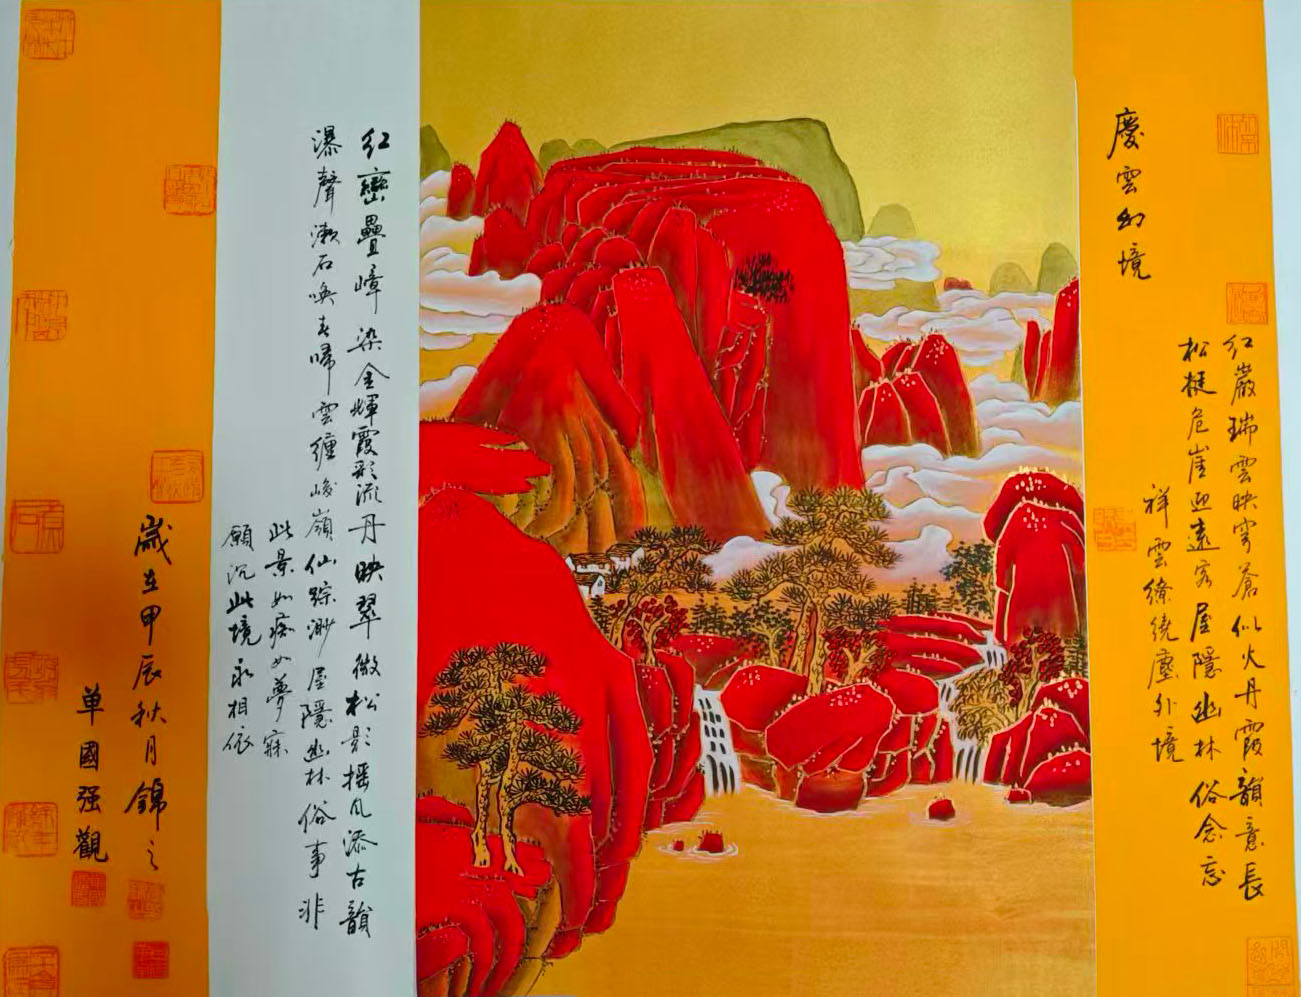 慶雲幻境
紅巖瑞雲映穹蒼似火丹霞韻意長
松挺危崖迎遠客屋隱幽林俗念忘
祥雲繚繞塵外境
紅巒疊嶂染金輝霞彩流丹映翠微松影搖風添古韻
瀑聲漱石喚春歸雲纏峻嶺仙踪渺屋隱幽林俗事非
此景如痴如夢寐
願沉此境永相依
歲在甲辰秋月錦之
单國强觀